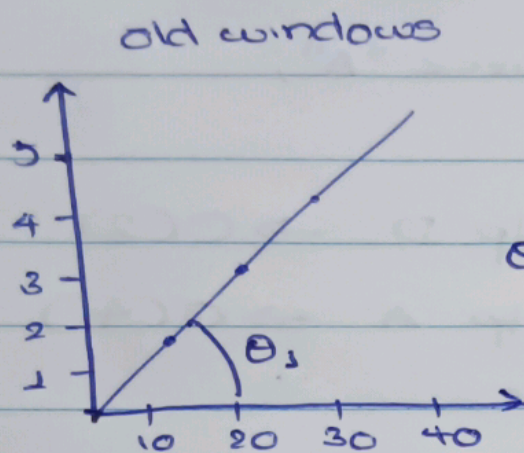 old windows
5
4
3
2
1
θ1
θ
10 20 30 40